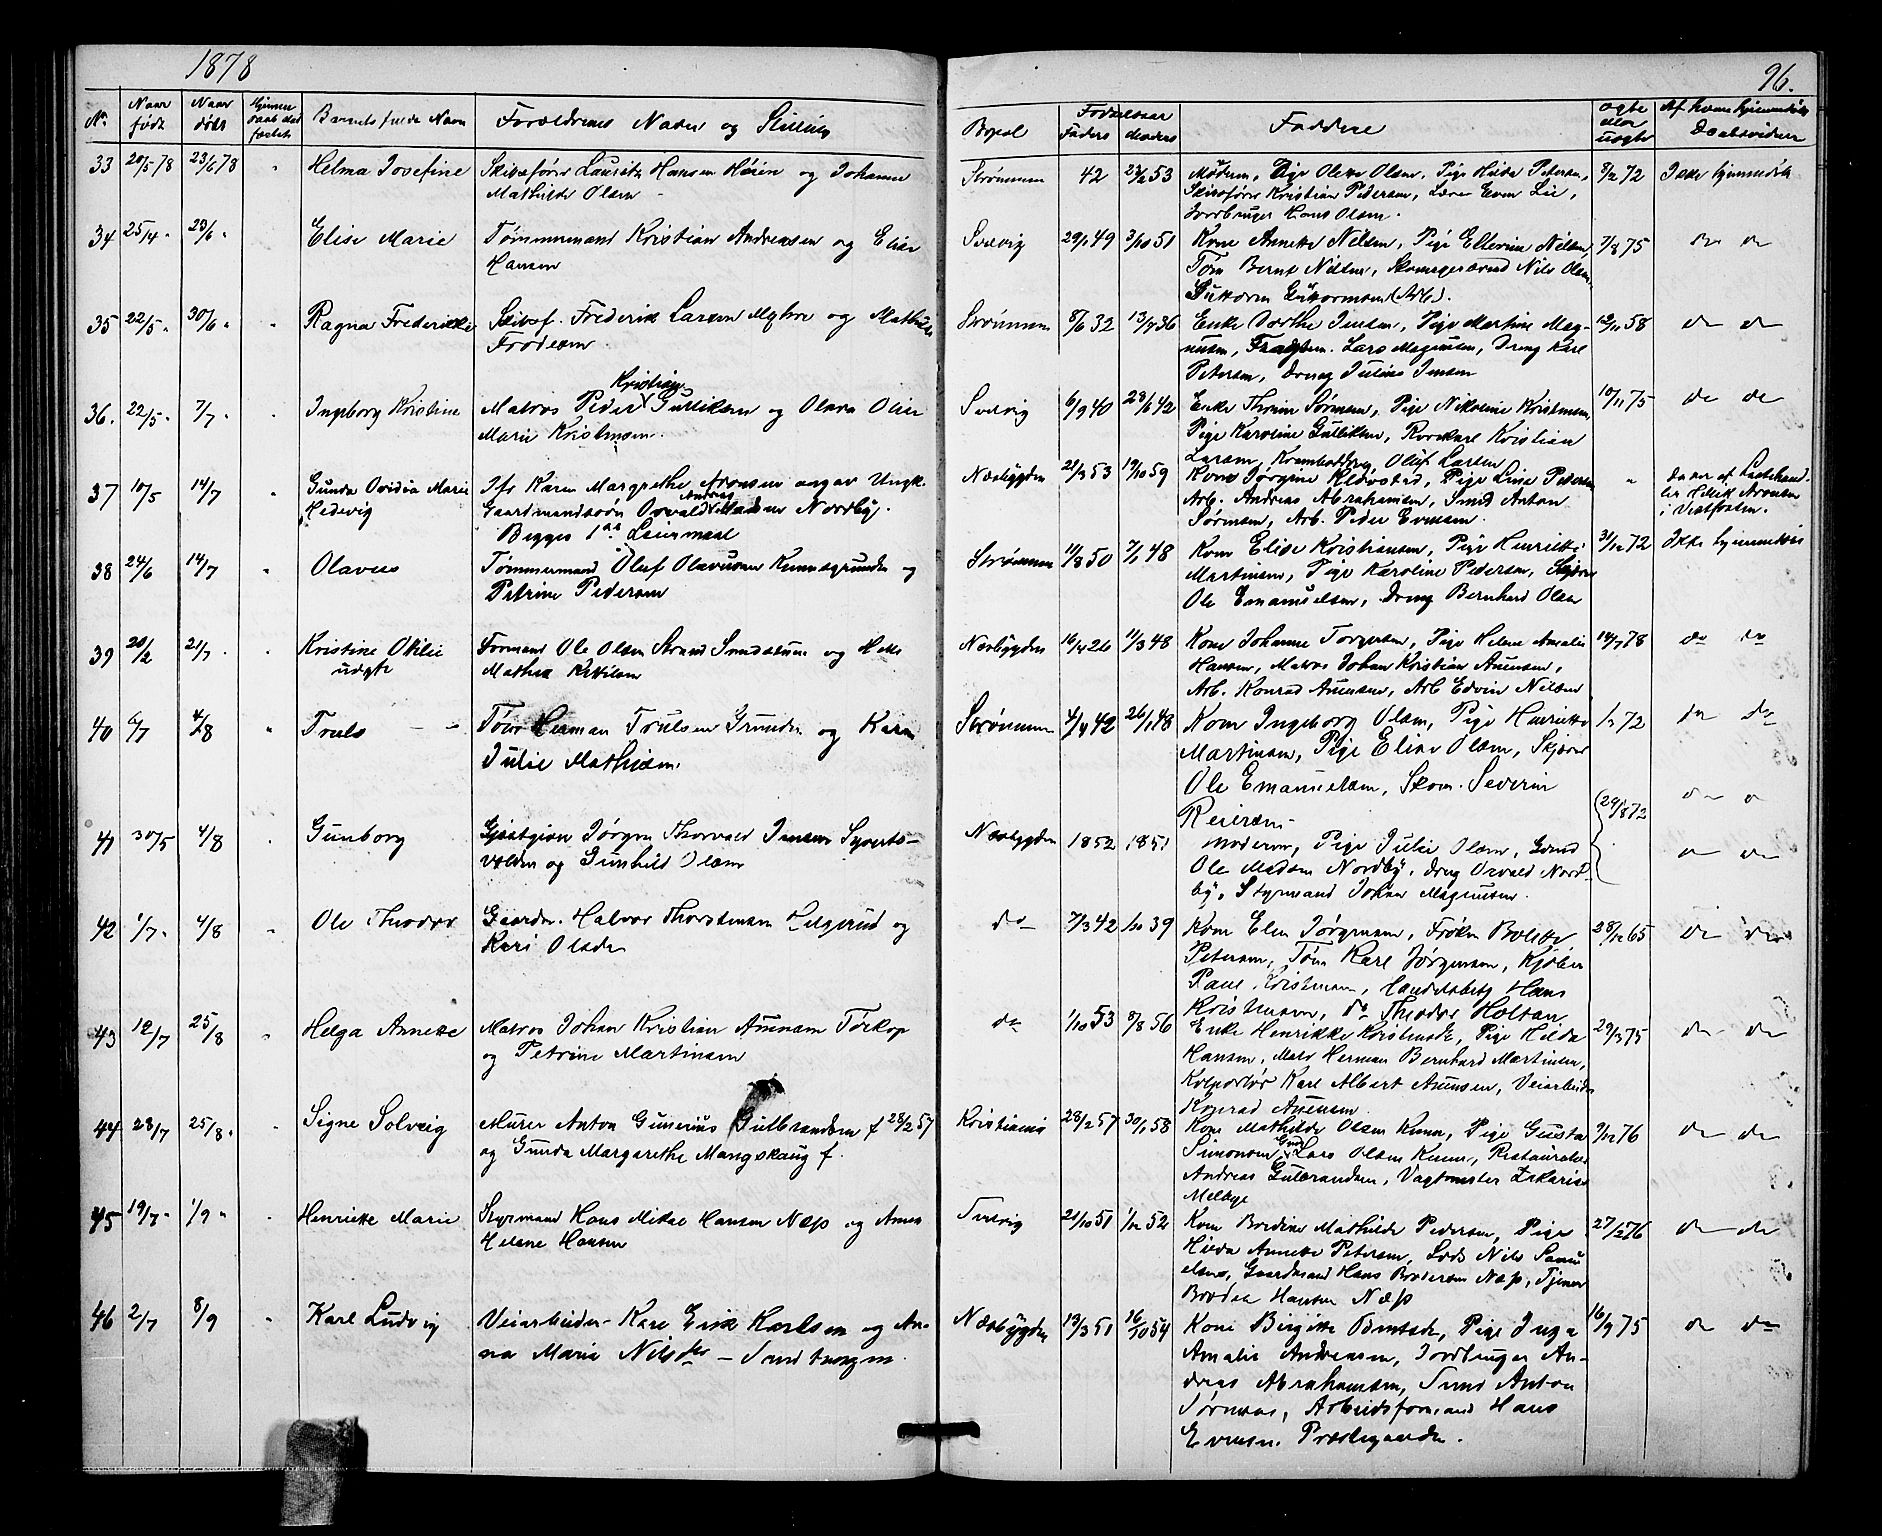 1878
96.
No. Naar født Naar døbt Hjemmedaab stadfæstet Barnets fulde Navn Forældrenes Navn og Stilling Bopæl Fødselsaar Faders Moders Faddere ægte eller uægte
33 20/5 78 23/6 78 " Helma Josefine Skibsfører Lauritz Hansen Høien og Johanne Strømmen 42 22/2 53 Moderen, Pige Olette Olsen, Pige Hilda Petersen, 8/2 72 Ikke hjemmedøbt
Mathilde Olsen Skibsfører Kristian Pedersen, Lærer Even Lie,
Jordbruger Hans Olsen.
34 25/4 " 23/6 " Elise Marie Tømmermand Kristian Andreasen og Elise Svelvig 29/1 49 3/10 51 Kone Annette Nilsen, Pige Elterine Nilsen, 7/8 75 do do
Hansen Tøm Bernt Nilsen, Nils Olsen,
(Arb).
35 22/5 " 30/6 " Ragna Frederikke Skibsf. Frederik Larsen Myhre og Mathilde Strømmen 8/6 32 13/7 36 Enke Dorthe Jensen, Pige Martine Mag- 12/11 58 do do
nusen, Lars Magnusen, Dreng Karl
Petersen, Dreng Julius Jensen
36. 22/5 " 7/7 " Ingeborg Kristine Matros Peder Kristian Gulliksen og Olava Oline Svelvig 6/9 40 23/6 42 Enke Thrine Sørensen, Pige Nikoline Kristensen, 10/11 75 do do
Marie Kristensen. Pige Karoline Gulliksen, Rorskarl Kristian
Larsen, Oluf Larsen
37 10/5 14/7 " Gunda Ovidia Marie Ifr Karen Margrethe Aronsen angav Ungk. Næsbygden 21/3 53 19/10 59 Kone Jørgine Klevstad, Pige Line Petersen " Datter af Ladehand-
Hedevig Gaardmandssøn Osvald Andreas Madsen Nordby. Arb. Andreas Abrahamsen, Smed Anton ler Aronsen
Begges 1ste Leiermaal Sørensen, Arb. Peder Evensen. i Vestfossen.
38 24/6 14/7 " Olavus Tømmermand Oluf Olavusen Kunnegrunden og Strømmen 11/8 50 7/1 48 Kone Elise Kristiansen, Pige Henriette 31/12 72 Ikke hjemmedøbt
Petrine Pedersen Martinsen, Pige Karoline Pedersen,
Ole Emanuelsen, Dreng Bernhard Olsen
39 20/2 21/7 " Kristine Otilie Formand Ole Olsen Strand og Næsbygden 16/4 26 11/3 48 Kone Johanne Torgersen, Pige Helene Amalie 14/7 78 do do
udgte Mathea Kittilsen Hansen, Matros Johan Kristian Anensen,
Arb. Konrad Anensen, Arb Edvin Nilsen
40 6/7 4/8 " Truls Tøm Herman Trulsen Grunden og Karen Strømmen 4/4 42 26/1 48 Kone Ingeborg Olsen, Pige Henriette 72 do do
Julie Mathisen. Martinsen, Pige Elise Olsen, Skjører
Ole Emanuelsen, Skom. Severin
Reiersen
41 30/5 4/8 " Gunborg Gjæstgiver Jørgen Thorvald Jensen Syverts- Næsbygden 1852 1851 Moderen, Pige Julie Olsen, Gmd 24/8 72 do do
volden og Gunhild Olsen Ole Madsen Nordby, Dreng Osvald Nord-
by, Styrmand Johan Magnusen.
42 1/7 " 4/8 " Ole Theodor Gaardbr. Halvor Thorstensen Helgerud og do 7/3 42 1/10 39 Kone Elen Jørgensen, Frøken Bolette 28/12 65 do do
Kari Olsdr Petersen, Tøm Karl Jørgensen, Kjøbm
Paul Kristensen, Handelsbetj Hans
Kristensen, do Theodor Holtan
43 12/7 25/8 " Helga Annette Matros Johan Kristian Anensen Tørkop do 1/10 53 8/8 56 Enke Henrikke Kristensdr, Pige Hilda 29/3 75 do do
og Petrine Martinsen Hansen, Herman Bernhard Martinsen,
Kolportør Karl Albert Anensen, Veiarbeider
Konrad Anensen
44 23/7 25/8 " Signe Solveig Murer Anton Gunerius Gulbrandsen f 28/2 57 Kristiania 28/2 57 30/1 58 Kone Mathilde Olsen Kunne, Pige Gusta 9/12 76 do do
og Gunda Margarethe Mangskaug f. Simonsen, Gmd Lars Olsen Kunne, Restauratør
Andreas Gulbrandsen, Vagtmester Zakarias
Melbye
45 19/7 " 1/9 " Henriette Marie Styrmand Hans Mikal Hansen Næss og Anna Svelvig 21/10 51 1/12 52 Kone Bredine Mathilde Pedersen, Pige 27/12 76 do do
Helene Hansen Hilda Annette Petersen, Lods Nils Samu-
elsen, Gaardmand Hans Brodersen Næss, Tjener
Hansen Næss
46 2/7 8/9 Karl Ludvig Veiarbeider Karl Erik Karlsen og An- Næsbygden 13/3 51 16/10 54 Kone Birgitte Berntsdr, Pige Inga 16/9 75 do do
na Marie Nilsdtr – Amalie Andreasen, Jordbruger An-
dreas Abrahamsen, Smed Anton
Sørensen, Arbeidsformand Hans
Evensen. Præstegaarden.